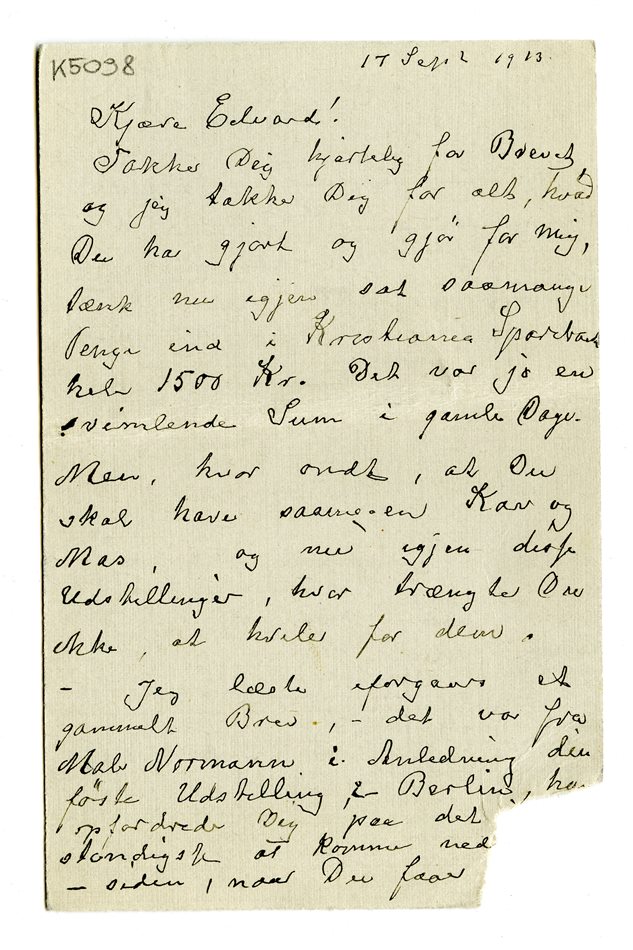 K5098
17 Sept 1913.
Kjære Edvard!
Takker Dig hjertelig for Brevet,
og jeg takker Dig for alt, hvad
Du har gjort og gjör for mig,
tænk nu igjen sat saamange
Penge ind i Kristiania Sparebank
hele 1500 Kr. Det var jo en
svimlende Sum i gamle Dage.
Men, hvor ondt, at Du
skal have saamegen Kav og
Mas, og nu igjen disse
Udstillinger, hvor trængte Du
ikke, at hvile for dem.
– Jeg læste iforgaars et
gammelt Brev, – det var fra
Maler Normann i Anledning din
förste Udstilling i Berlin, ha
opfordrede Dig paa det
stændigste at komme ned
– siden, naar Du faar